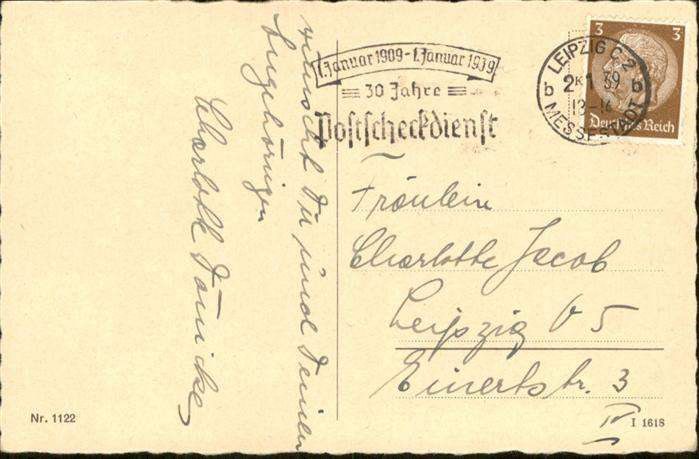 wünscht Dir und Deinen
Angehörigen
Charlotte
1. Januar 1909 - 1. Januar 1939
30 Jahre
Postscheckdienst
LEIPZIG C2
b 2.1.39 b
MESSESTADT
3 3
Deutsches Reich
Fräulein
Charlotte Jacob
Leipzig O 5
Einertstr. 3
IV
Nr. 1122
I 1618